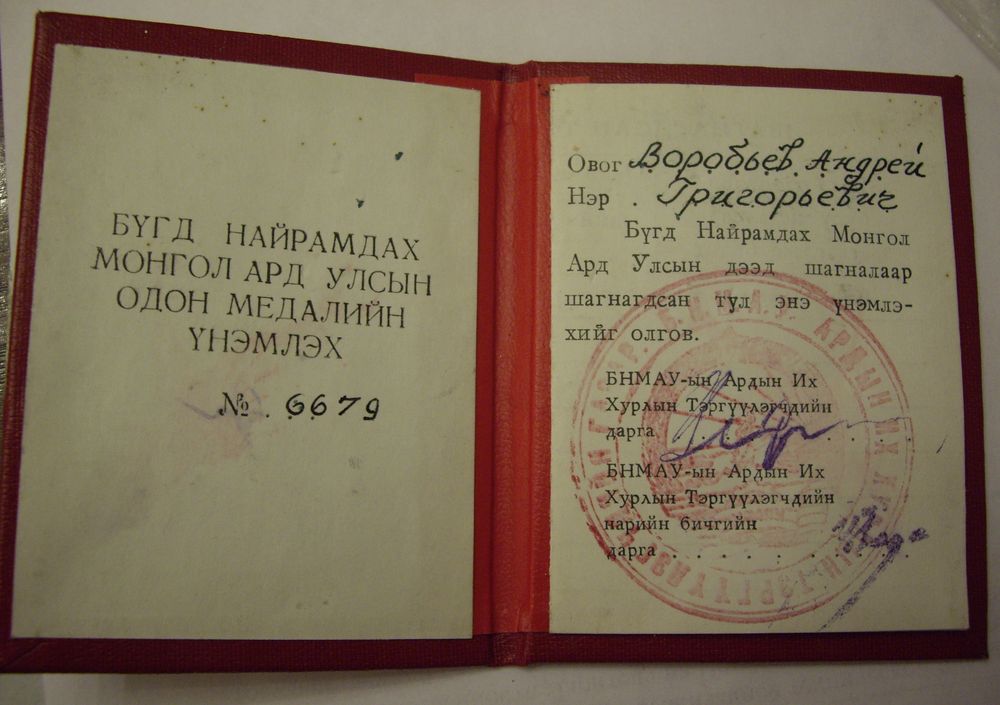 БҮГД НАЙРАМДАХ
МОНГОЛ АРД УЛСЫН
ОДОН МЕДАЛИЙН
ҮНЭМЛЭХ
№ . 6679
Овог Воробьев Андрей
Нэр . Григорьевич
Бүгд Найрамдах Монгол
Ард Улсын дээд шагналаар
шагнагдсан тул энэ үнэмлэ-
хийг олгов.
БНМАУ-ын Ардын Их
Хурлын Тэргүүлэгчдийн
дарга
БНМАУ-ын Ардын Их
Хурлын Тэргүүлэгчдийн
нарийн бичгийн
дарга . . . . . . . . . .